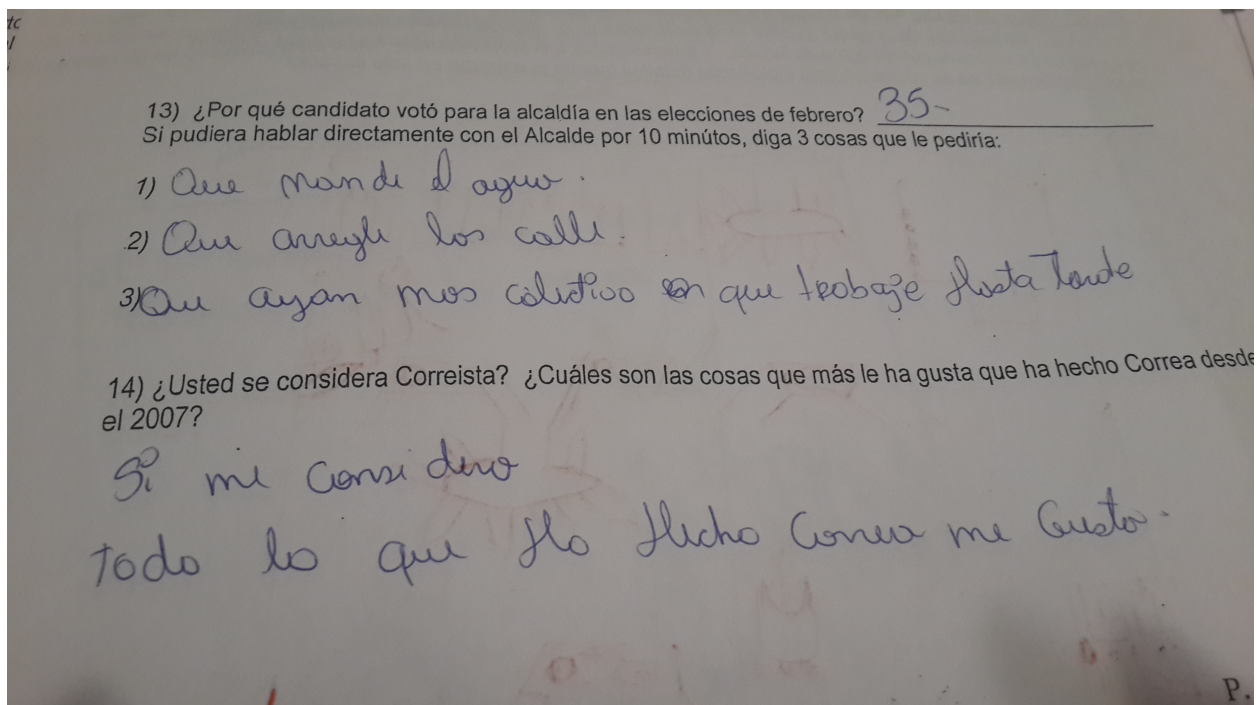 13) ¿Por qué candidato votó para la alcaldía en las elecciones de febrero? 35-
Si pudiera hablar directamente con el Alcalde por 10 minútos, diga 3 cosas que le pediría:
1) Que mande el agua.
2) Que arregle las calle.
3) Que ayan mas colectivo en que trobaje Hasta Tarde
14) ¿Usted se considera Correista? ¿Cuáles son las cosas que más le ha gusta que ha hecho Correa desde
el 2007?
Si me Considero
Todo lo que Ha Hecho Correa me Gusta.
P.